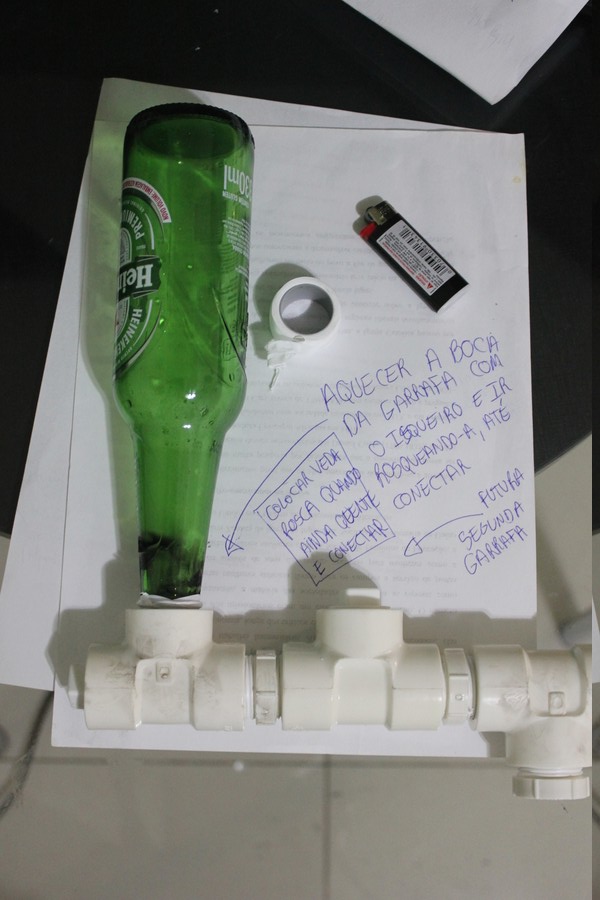 330ml
PREMIUM
Heine
HEINEKEN
AQUECER A BOCA
DA GARRAFA COM
O ISQUEIRO E IR
ROSQUEANDO-A, ATÉ
CONECTAR
COLOCAR VEDA
ROSCA QUANDO
AINDA QUENTE
E CONECTAR
FUTURA
SEGUNDA
GARRAFA